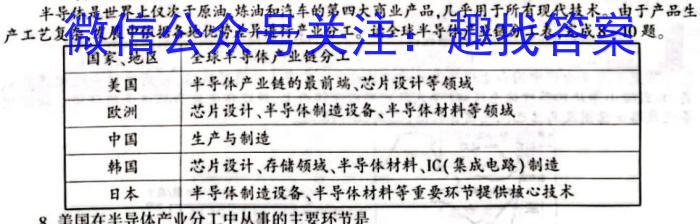 半导体是世界上仅次于原油、炼油和汽车的第四大商业产品,几乎用于所有现代技术。由于产品生
产工艺复杂
微信公众号关注：趣找答案
题。
国家、地区 全球半导体产业链分工
美国 半导体产业链的最前端、芯片设计等领域
欧洲 芯片设计、半导体制造设备、半导体材料等领域
中国 生产与制造
韩国 芯片设计、存储领域、半导体材料、IC(集成电路)制造
日本 半导体制造设备、半导体材料等重要环节提供核心技术
8. 美国在半导体产业分工中从事的主要环节是